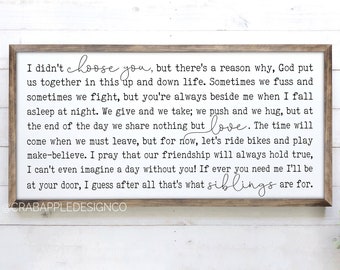 I didn't choose you, but there's a reason why, God put
us together in this up and down life. Sometimes we fuss and
sometimes we fight, but you're always beside me when I fall
asleep at night. We give and we take; we push and we hug, but at
the end of the day we share nothing but love. The time will
come when we must leave, but for now, let's ride bikes and play
make-believe. I pray that our friendship will always hold true,
I can't even imagine a day without you! If ever you need me I'll be
at your door, I guess after all that's what siblings are for.
CRABAPPLEDESIGNCO